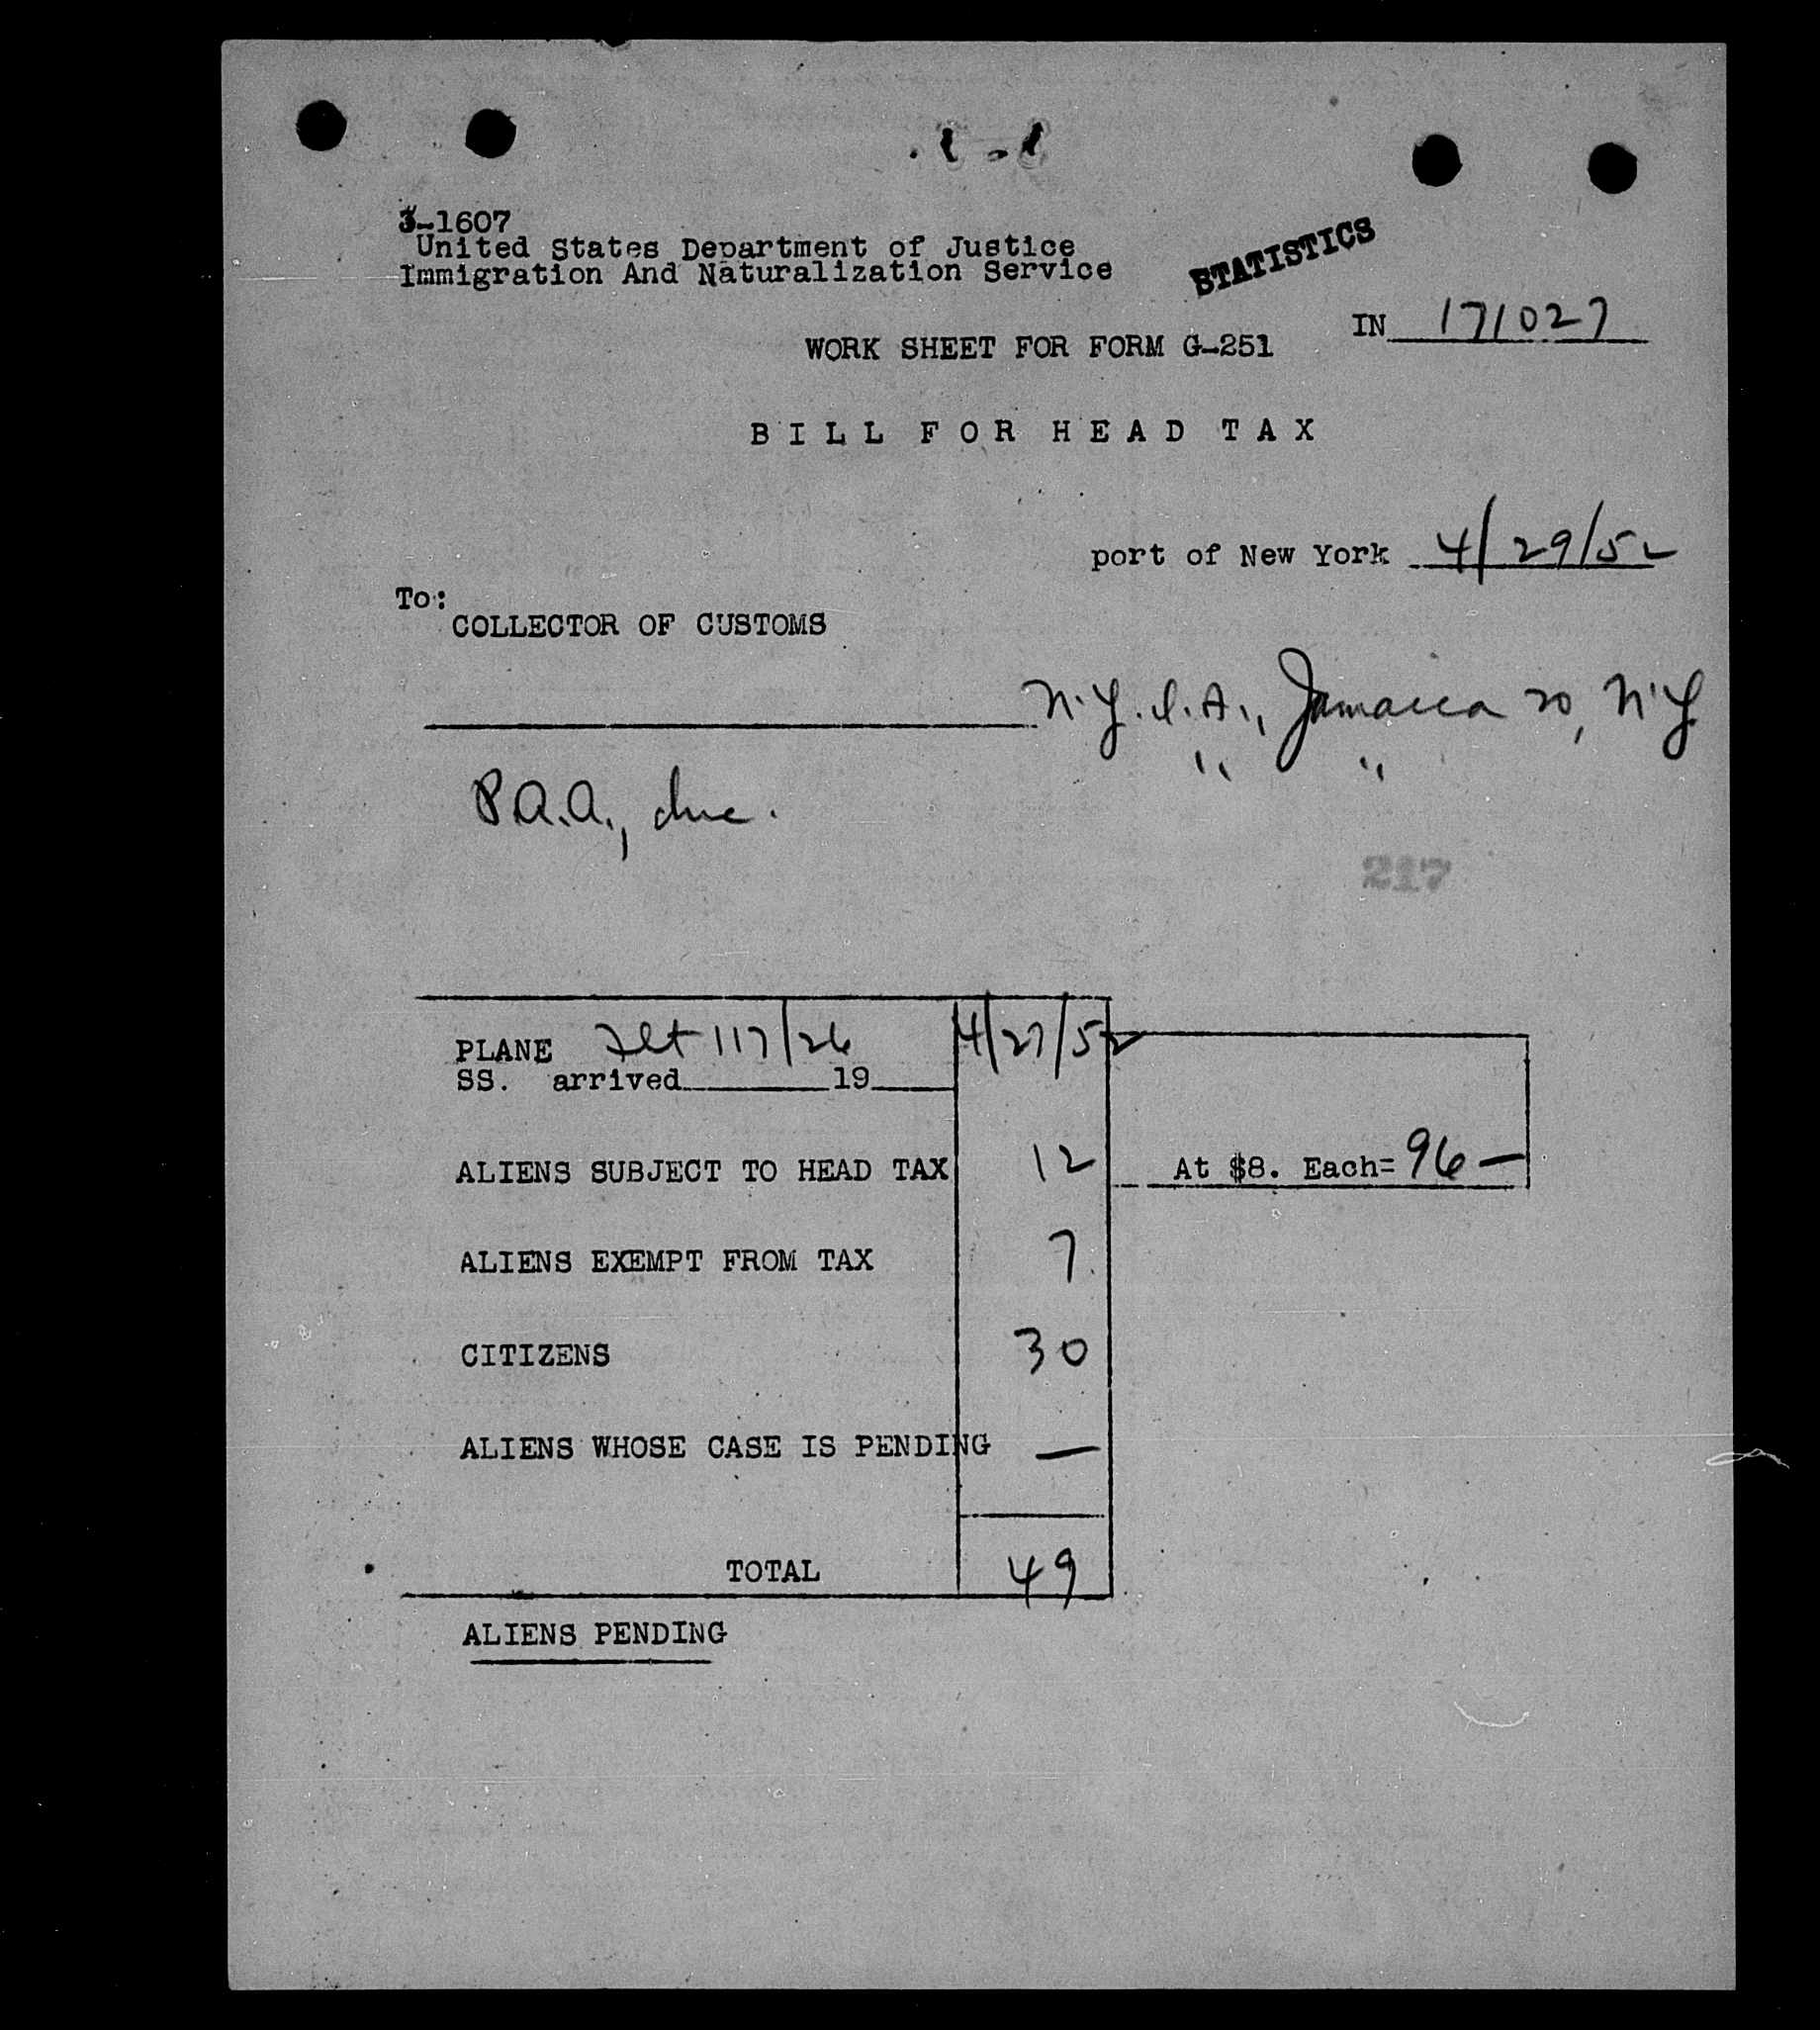 3-1607
United States Department of Justice
Immigration And Naturalization Service
STATISTICS
IN 171027
WORK SHEET FOR FORM G-251
BILL FOR HEAD TAX
port of New York 4/29/52
To:
COLLECTOR OF CUSTOMS
N.Y.I.A., Jamaica 20, N.Y.
" "
P.A.A., Inc.
217
PLANE Flt 117/26 4/27/52
SS. arrived 19
ALIENS SUBJECT TO HEAD TAX 12 At $8. Each= 96 —
ALIENS EXEMPT FROM TAX 7
CITIZENS 30
ALIENS WHOSE CASE IS PENDING —
TOTAL 49
ALIENS PENDING